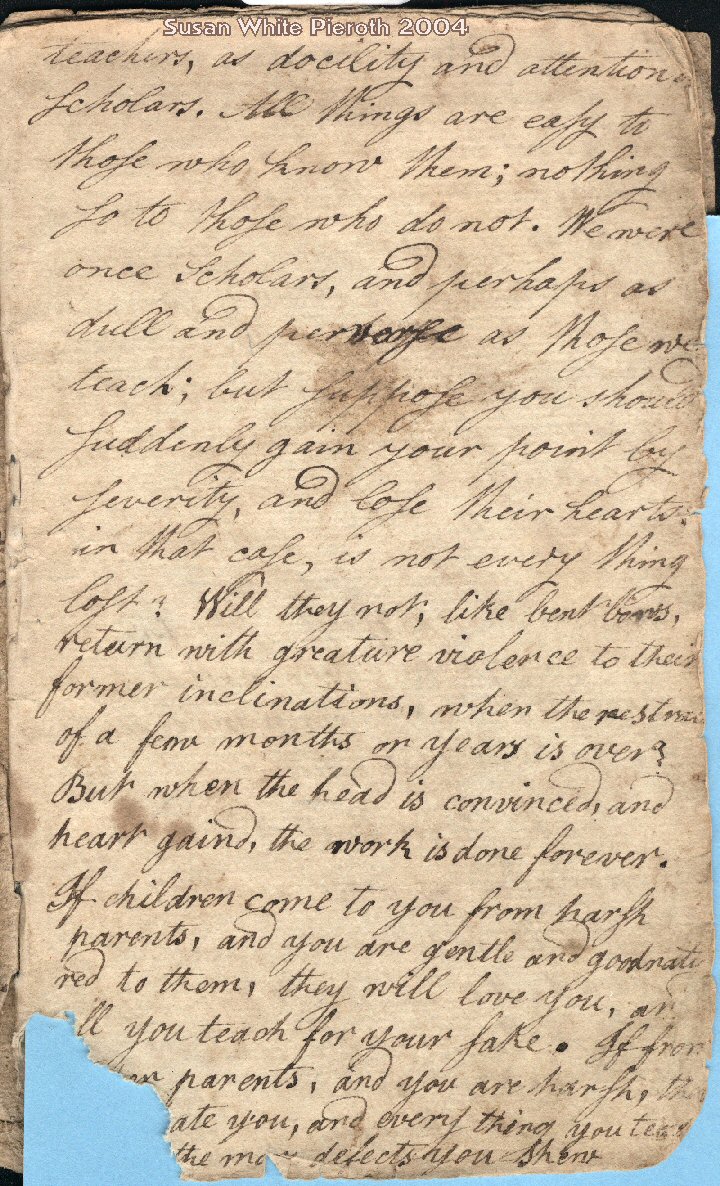 Susan White Pieroth 2004
teachers, as docility and attention
scholars. All things are eaſy to
thoſe who know them; nothing
ſo to thoſe who do not. We were
once Scholars, and perhaps as
dull and perverſe as thoſe we
teach; but ſuppoſe you should
ſuddenly gain your point by
ſeverity, and loſe their hearts.
in that caſe, is not every thing
loſt? Will they not, like bent bows,
return with greature violence to their
former inclinations, when the restrai
of a few months or years is over?
But when the head is convinced, and
heart gaind, the work is done forever.
If children come to you from harſh
parents, and you are gentle and goodnatu
red to them, they will love you, an
ll you teach for your ſake. If from
parents, and you are harſh, the
ate you, and every thing you teac
the more defects you shew